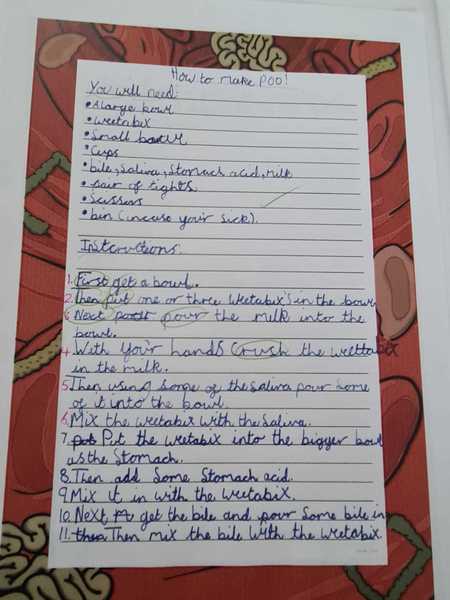 How to make poo!
You will need:
• A large bowl
• weetabix
• Small bowl
• Cups
• bile, Saliva, Stomach acid, milk
• pair of tights
• Scissors
• bin (incase your sick).
Instructions.
1. First get a bowl.
2. then put one or three weetabix's in the bowl
3. Next pour the milk into the
bowl.
4. With your hands Crush the weetabix
in the milk.
5. Then using some of the saliva pour some
of it into the bowl.
6. Mix the wetabix with the saliva.
7. Put the wetabix into the bigger bowl
as the Stomach.
8. Then add Some Stomach acid.
9. Mix it in with the weetabix.
10. Next get the bile and pour some bile in
11. then Then mix the bile with the weetabix.